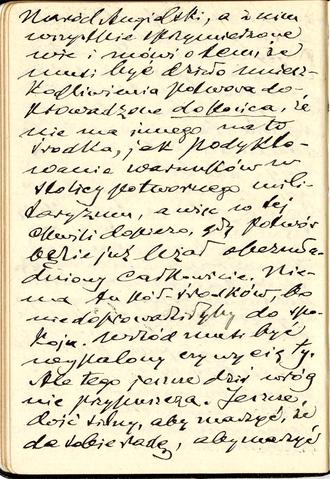 Naród Angielski, a z nim
wszystkie sprzymierzone
wie i mówi o tem, że
musi być dzieło uniesz-
kodliwienia potwora do-
prowadzone do końca, że
nie ma innego na to
środka, jak podykto-
wanie warunków w
stolicy potwornego mili-
taryzmu, a więc w tej
chwili dopiero, gdy potwór
będzie już leżał obezwła-
dniony całkowicie. Nie-
ma tu pół-środków, bo
niedoprowadziłyby do spo-
koju. Wrzód musi być
wypalony czy wycięty.
Ale tego jeszcze dziś wróg
nie przypuszcza. Jeszcze,
dość silny, aby marzyć, że
da sobie radę, aby marzyć